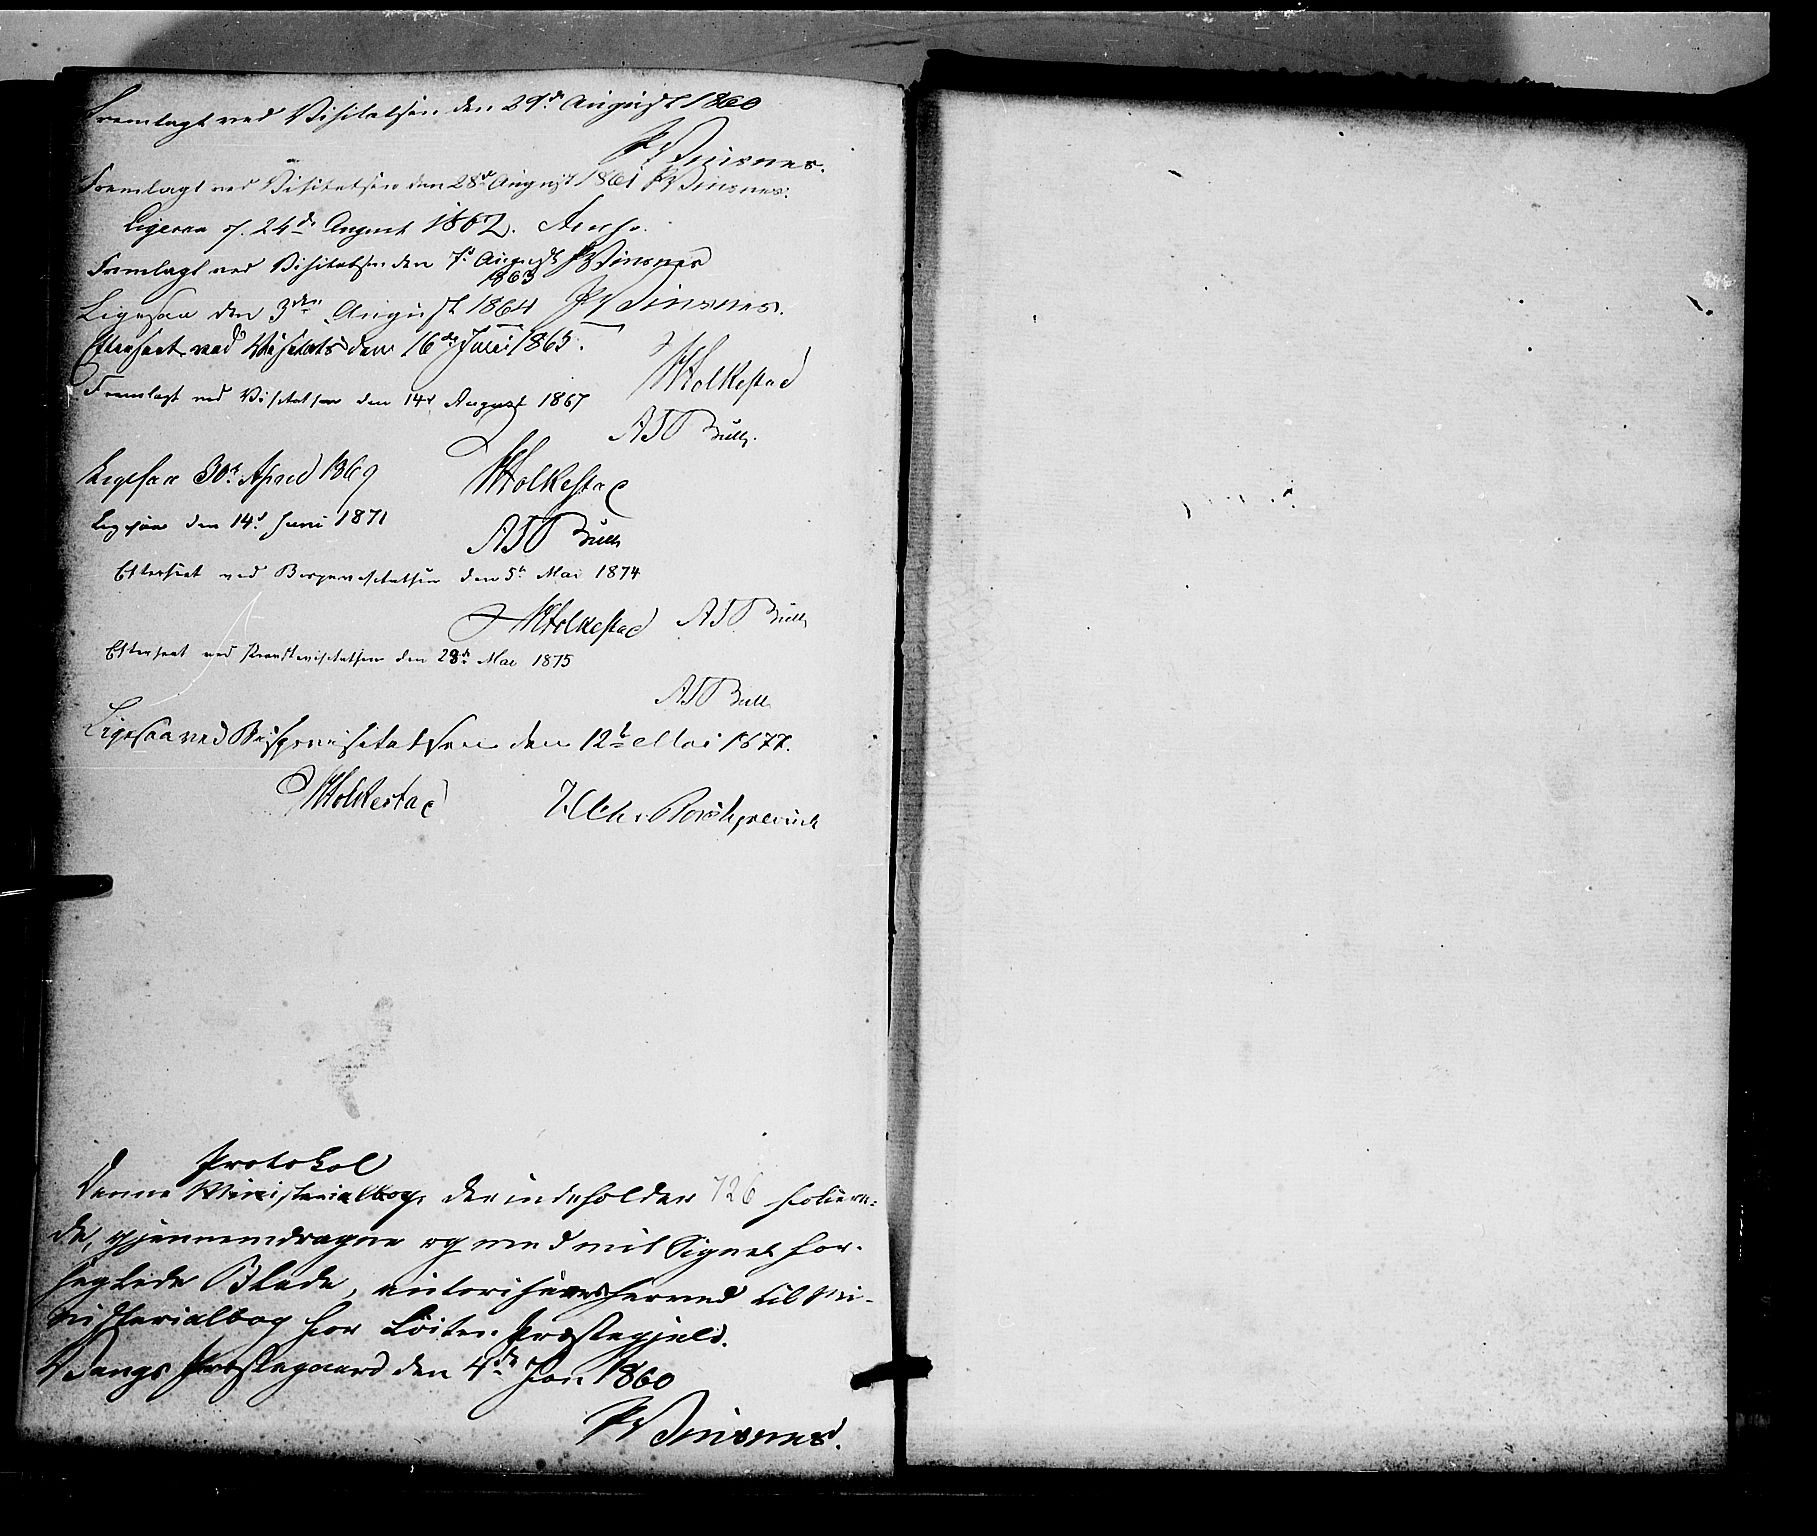 Fremlagt ved Visitatsen den 29de August 1860
PWinsnes.
Fremlagt ved Visitatsen den 28de August 1861 PWinsnes.
Ligesaa d. 24de August 1862.
Fremlagt ved Visitatsen den 7de August PWinsnes
1863
Ligesaa den 3den August 1864 PWinsnes.
Efterseet ved Visitats den 16de Juli 1865.
HHolkestad
Fremlagt ved Visitatsen den 14d August 1867
ASO Bull.
Ligesaa 30te April 1869 HHolkestad
Ligesaa den 14d Juni 1871
ASO Bull
Efterseet ved Bispevisitatsen den 5te Mai 1874
HHolkestad ASO Bull
Efterseet ved Provstevisitatsen den 28de Mai 1875
ASO Bull
Ligesaa ved Bispevisitatsen den 12te Mai 1877.
HHolkestad
Protokol
Denne Ministerialbog, der indeholder 726 foliere-
de, gjennemdragne og med mit Signet for-
seglede Blade, autoriseres herved til Mi-
nisterialbog for Löiten Præstegjeld.
Vangs Præstegaard den 4de Jan 1860
PWinsnes.